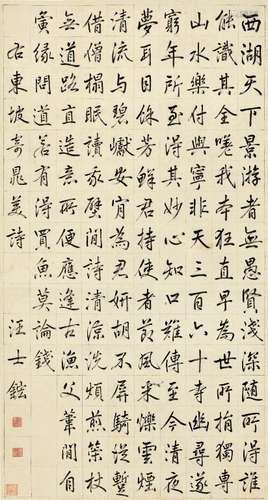 西湖天下景游者無愚賢淺深隨所得誰
能識其全嗟我本狂直早為世所捐獨專
山水樂付與寧非天三百六十寺幽尋遂
窮年所至得其妙心知口難傳至今清夜
夢耳目餘芳鮮君持使者節風采爍雲煙
清流與碧巘安肯為君妍胡不屏騎從暫
借僧榻眠讀我壁間詩清涼洗煩煎策杖
無道路直造意所便應逢古漁父葦間自
夤緣問道若有得買魚莫論錢
右東坡寄晁美詩 汪士鋐